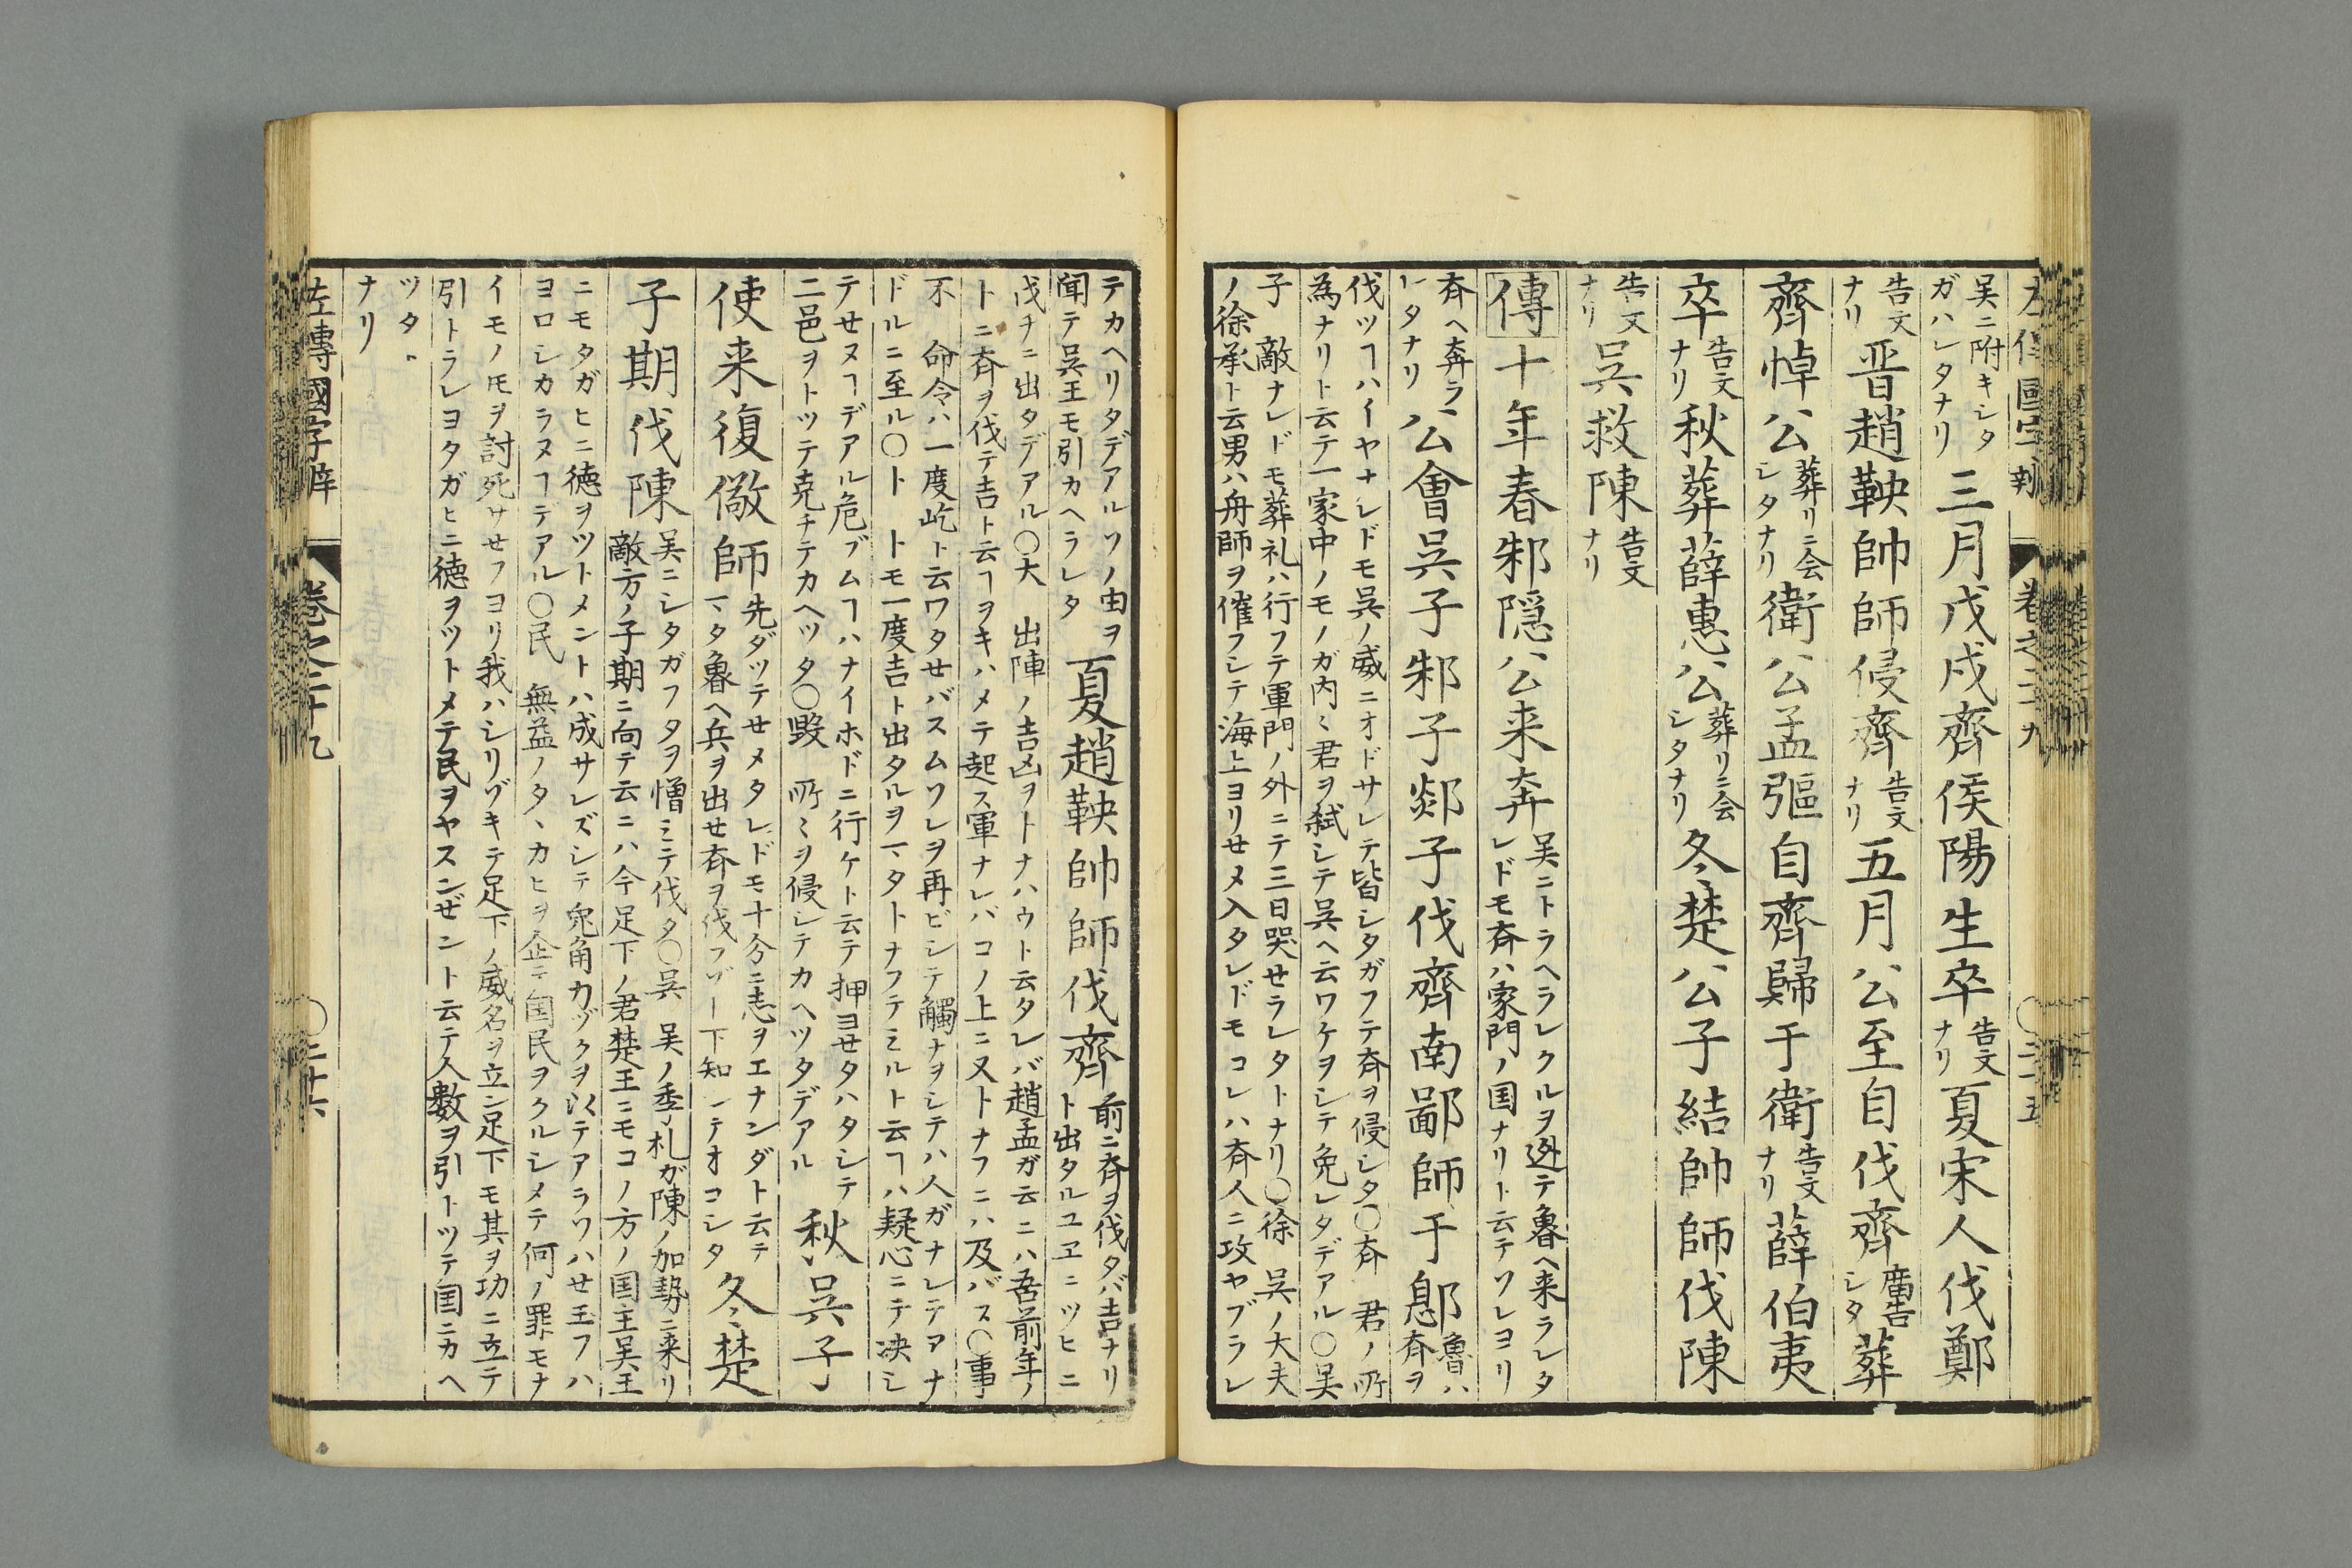 呉ニ附キシタ
ガハレタナリ
三月戊戌齊侯陽生卒
告文
ナリ
夏宋人伐鄭
告文
ナリ
晋趙鞅帥師侵齊
告文
ナリ
五月公至自伐齊
廣告
シタ
葬
齊悼公
葬リニ会
シタナリ
衛公孟彄自齊歸于衛
告文
ナリ
薛伯夷
卒
告文
ナリ
秋葬薛惠公
葬リニ会
シタナリ
冬楚公子結帥師伐陳
告文
ナリ
呉救陳
告文
ナリ
傳十年春邾隠公来奔
呉ニトラヘラレクルヲ迯テ魯ヘ来ラレタ
レドモ斉ハ家門ノ国ナリト云テソレヨリ
斉ヘ奔ラ
レタナリ
公會呉子邾子郯子伐齊南鄙師于鄎
魯ハ
斉ヲ
伐ツヿハイヤナレドモ呉ノ威ニオドサレテ皆シタガフテ斉ヲ侵シタ〇斉 君ノ所
為ナリト云テ一家中ノモノガ内〻君ヲ弑シテ呉ヘ云ワケヲシテ免レタデアル〇呉
子 敵ナレドモ葬礼ハ行フテ軍門ノ外ニテ三日哭セラレタトナリ〇徐 呉ノ大夫
ノ徐承ト云男ハ舟師ヲ催フシテ海上ヨリセメ入タレドモコレハ斉人ニ攻ヤブラレ
テカヘリタデアルソノ由ヲ
聞テ呉王モ引カヘラレタ
夏趙鞅帥師伐齊
前ニ斉ヲ伐タバ吉ナリ
ト出タルユヱニツヒニ
伐チニ出タデアル〇大 出陣ノ吉凶ヲトナハウト云タレバ趙孟ガ云ニハ吾前年ノ
トニ斉ヲ伐テ吉ト云ヿヲキハメテ起ス軍ナレバコノ上ニ又トナフニハ及バス〇事
不 命令ハ一度屹ト云ワタせバスムソレヲ再ビシテ觸ナヲシテハ人ガナレテアナ
ドルニ至ル〇ト トモ一度吉ト出タルヲマタトナフテミルト云ヿハ疑心ニテ决シ
テせヌヿデアル危ブムヿハナイホドニ行ケト云テ押ヨせタハタシテ
二邑ヲトツテ克チテカヘツタ〇毀 所〻ヲ侵シテカヘツタデアル
秋呉子
使来復儆師
先ダツテせメタレドモ十分ニ志ヲエナンダト云テ
マタ魯ヘ兵ヲ出せ斉ヲ伐フゾー下知シテオコシタ
冬楚
子期伐陳
呉ニシタガフタヲ憎ミテ伐タ〇呉 呉ノ季札ガ陳ノ加勢ニ来リ
敵方ノ子期ニ向テ云ニハ今足下ノ君楚王ニモコノ方ノ国主呉王
ニモタガヒニ徳ヲツトメントハ成サレズシテ兎角力ヅクヲ以テアラソハせ玉フハ
ヨロシカラヌヿデアル〇民 無益ノタヽカヒヲ企テ国民ヲクルシメテ何ノ罪モナ
イモノ𪜈ヲ討死サせフヨリ我ハシリゾキテ足下ノ威名ヲ立ン足下モ其ヲ功ニ立テ
引トラレヨタガヒニ徳ヲツトメテ民ヲヤスンぜント云テ人數ヲ引トツテ国ニカヘ
ツタ
ナリ
左傳國字辯 卷之二十九 〇二十六